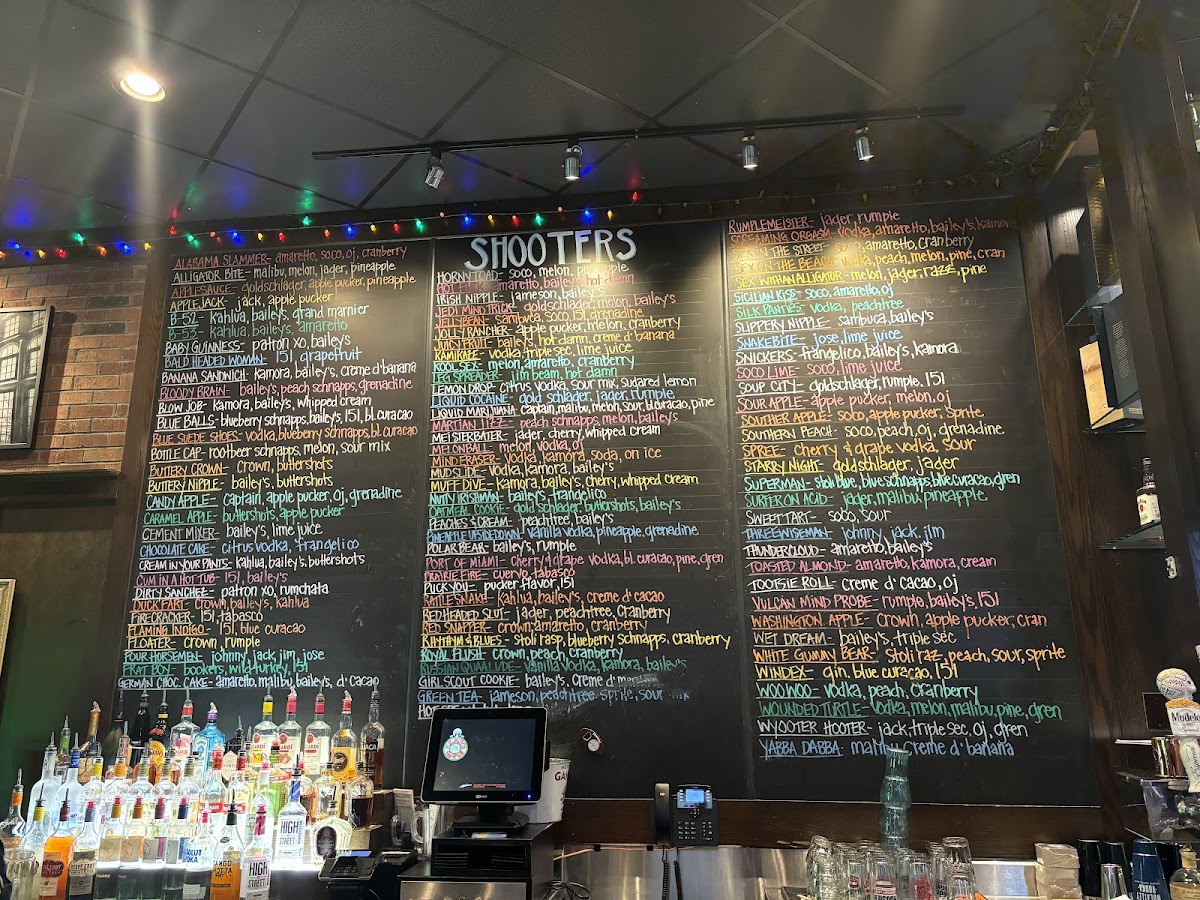 SHOOTERS
ALABAMA SLAMMER- amaretto, soco, oj, cranberry
ALLIGATOR BITE- malibu, melon, jager, pineapple
APPLESAUCE- goldschlager, apple pucker, pineapple
APPLE JACK- jack, apple pucker
B-52- kahlua, bailey's, grand marnier
B-53- kahlua, bailey's, amaretto
BABY GUINNESS- patron xo, bailey's
BALD HEADED WOMAN- 151, grapefruit
BANANA SANDWICH- kamora, bailey's, creme d'banana
BLOODY BRAIN- bailey's, peach schnapps, grenadine
BLOW JOB- kamora, bailey's, whipped cream
BLUE BALLS- blueberry schnapps, bailey's, 151, bl. curacao
BLUE SUEDE SHOES- vodka, blueberry schnapps, bl. curacao
BOTTLE CAP- rootbeer schnapps, melon, sour mix
BUTTERY CROWN- crown, buttershots
BUTTERY NIPPLE- bailey's, buttershots
CANDY APPLE- captain, apple pucker, oj, grenadine
CARAMEL APPLE- buttershots, apple pucker
CEMENT MIXER- bailey's, lime juice
CHOCOLATE CAKE- citrus vodka, frangelico
CREAM IN YOUR PANTS- kahlua, bailey's, buttershots
CUM IN A HOT TUB- 151, bailey's
DIRTY SANCHEZ- patron xo, rumchata
DUCK FART- crown, bailey's, kahlua
FIRECRACKER- 151, tabasco
FLAMING INDIGO- 151, blue curacao
FLOATER- crown, rumple
FOUR HORSEMEN- johnny, jack, jim, jose
FRAT BOY- bookers, wild turkey, 151
GERMAN CHOC. CAKE- amaretto, malibu, bailey's, d' cacao
HORNY TOAD- soco, melon, apple
amaretto, bailey's, hot damn
IRISH NIPPLE- jameson, bailey's
JEDI MIND TRICK- goldschlager, melon, bailey's
JELLYBEAN- sambuca, soco, 151, grenadine
JOLLY RANCHER- apple pucker, melon, cranberry
JUICY FRUIT- bailey's, hot damn, creme d' banana
KAMIKAZE- vodka, triple sec, lime juice
KOOL SEX- melon, amaretto, cranberry
LEG SPREADER- jim beam, hot damn
LEMON DROP- citrus vodka, sour mix, sugared lemon
LIQUID COCAINE- gold schlager, jager, rumple
LIQUID MARIJUANA- captain, malibu, melon, sour, bl. curacao, pine
MARTIAN JIZZ- peach schnapps, melon, bailey's
MEISTERBATER- jager, cherry, whipped cream
MELONBALL- melon, vodka, oj
MIND ERASER- vodka, kamora, soda, on ice
MUDSLIDE- vodka, kamora, bailey's
MUFF DIVE- kamora, bailey's, cherry, whipped cream
NUTTY IRISHMAN- bailey's, frangelico
OATMEAL COOKIE- gold schlager, buttershots, bailey's
PEACHES & CREAM- peachtree, bailey's
PINEAPPLE UPSIDEDOWN- vanilla vodka, pineapple, grenadine
POLAR BEAR- bailey's, rumple
PORT OF MIAMI- cherry & grape vodka, bl. curacao, pine, gren
PRAIRIE FIRE- cuervo, tabasco
PUCK YOU- pucker flavor, 151
RATTLESNAKE- kahlua, bailey's, creme d' cacao
REDHEADED SLUT- jager, peachtree, cranberry
RED SNAPPER- crown, amaretto, cranberry
RHYTHYM & BLUES- stoli rasp, blueberry schnapps, cranberry
ROYAL FLUSH- crown, peach, cranberry
RUSSIAN QUAALUDE- vanilla vodka, kamora, bailey's
GIRL SCOUT COOKIE- bailey's, creme d'
GREEN TEA- jameson, peachtree, sprite, sour mix
RUMPLEMEISTER- jager, rumple
SCREAMING ORGASM- vodka, amaretto, bailey's, kamora
STREET- soco, amaretto, cranberry
SEX ON THE BEACH- vodka, peach, melon, pine, cran
SEX WITH AN ALLIGATOR- melon, jager, razz, pine
SICILIAN KISS- soco, amaretto, oj
SILK PANTIES- vodka, peachtree
SLIPPERY NIPPLE- sambuca, bailey's
SNAKEBITE- jose, lime juice
SNICKERS- frangelico, bailey's, kamora
SOCO LIME- soco, lime juice
SOUP CITY- goldschlager, rumple, 151
SOUR APPLE- apple pucker, melon, oj
SOUTHER APPLE- soco, apple pucker, sprite
SOUTHERN PEACH- soco, peach, oj, grenadine
SPREE- cherry & grape vodka, sour
STARRY NIGHT- goldschlager, jager
SUPERMAN- stoli blue, blue schnapps, blue curacao, gren
SURFER ON ACID- jager, malibu, pineapple
SWEET TART- soco, sour
THREE WISEMEN- johnny, jack, jim
THUNDERCLOUD- amaretto, bailey's
TOASTED ALMOND- amaretto, kamora, cream
TOOTSIE ROLL- creme d' cacao, oj
VULCAN MIND PROBE- rumple, bailey's, 151
WASHINGTON APPLE- crown, apple pucker, cran
WET DREAM- bailey's, triple sec
WHITE GUMMY BEAR- stoli raz, peach, sour, sprite
WINDEX- gin, blue curacao, 151
WOO WOO- vodka, peach, cranberry
WOUNDED TURTLE- vodka, melon, malibu, pine, gren
WYOOTER HOOTER- jack, triple sec, oj, gren
YABBA DABBA- malibu, creme d' banana
HIGH
STREET
HIGH
STREET
Modelo